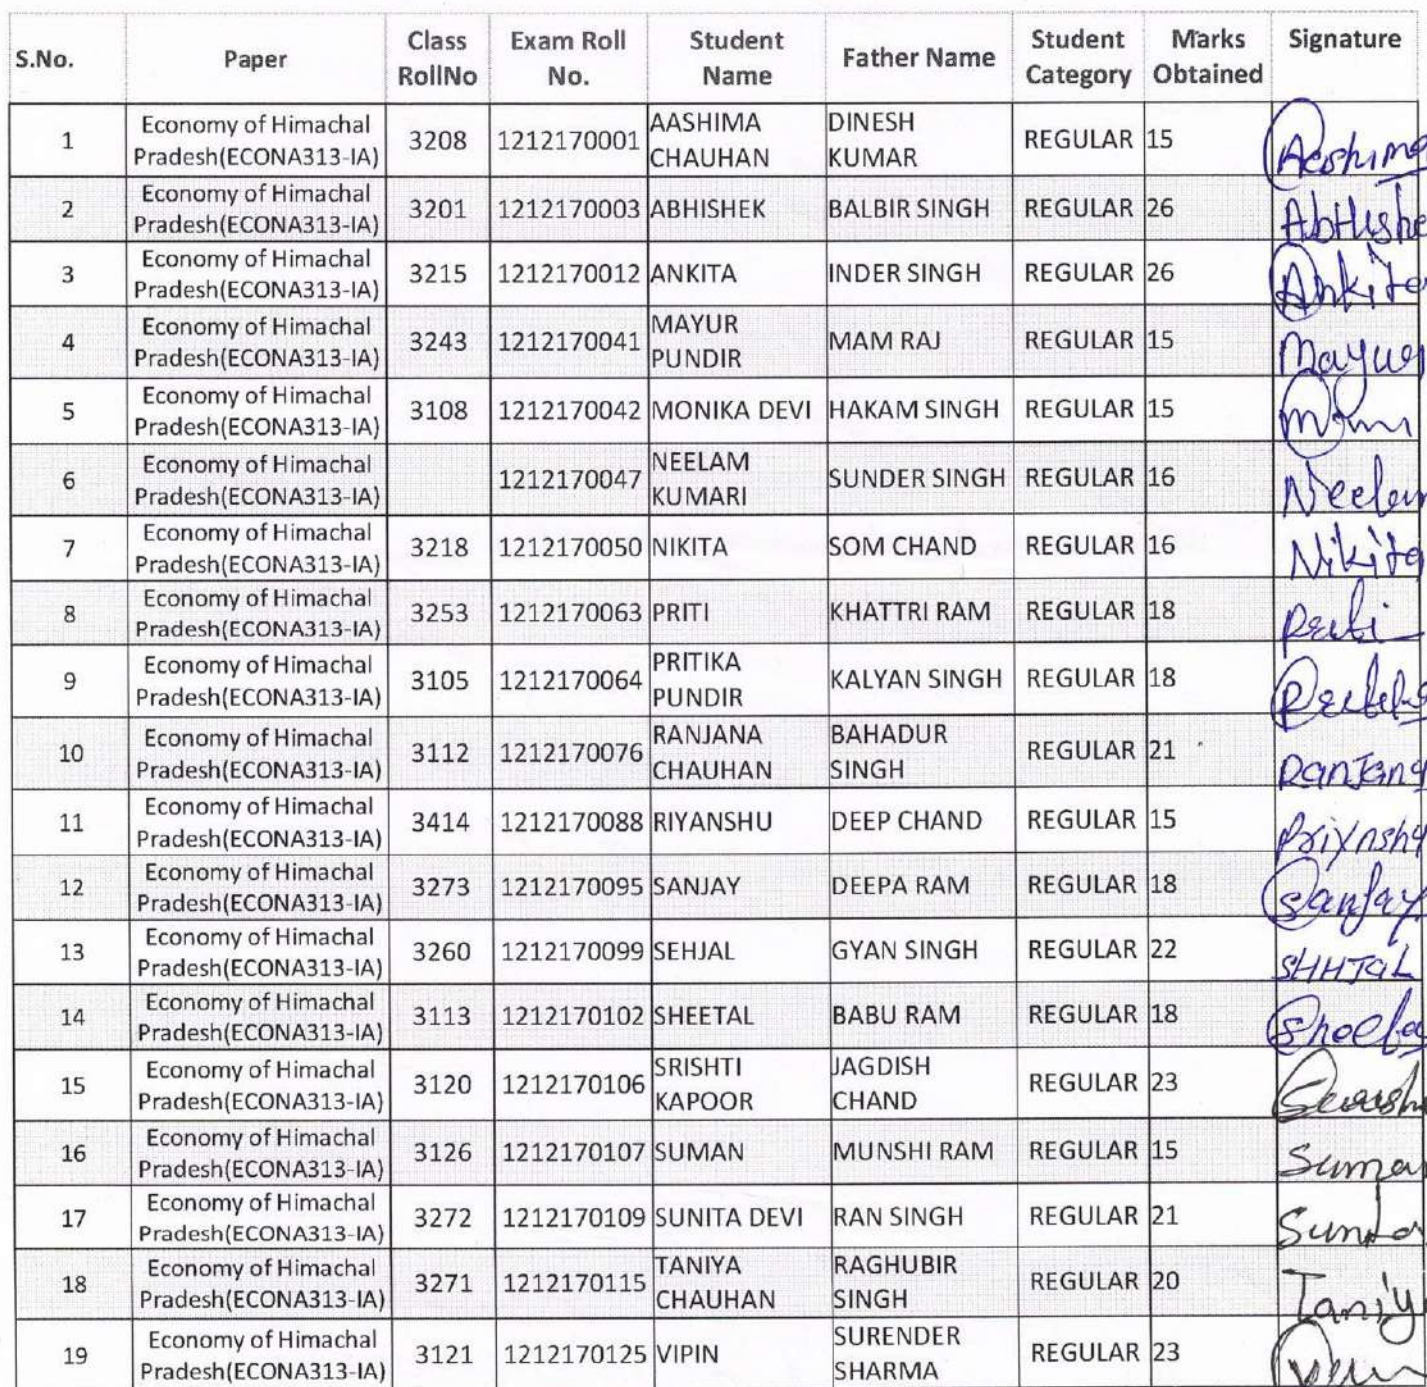 S.No. Paper Class RollNo Exam Roll No. Student Name Father Name Student Category Marks Obtained Signature
1 Economy of Himachal Pradesh(ECONA313-IA) 3208 1212170001 AASHIMA CHAUHAN DINESH KUMAR REGULAR 15 Aashima
2 Economy of Himachal Pradesh(ECONA313-IA) 3201 1212170003 ABHISHEK BALBIR SINGH REGULAR 26 AbHishe
3 Economy of Himachal Pradesh(ECONA313-IA) 3215 1212170012 ANKITA INDER SINGH REGULAR 26 Ankita
4 Economy of Himachal Pradesh(ECONA313-IA) 3243 1212170041 MAYUR PUNDIR MAM RAJ REGULAR 15 Mayur
5 Economy of Himachal Pradesh(ECONA313-IA) 3108 1212170042 MONIKA DEVI HAKAM SINGH REGULAR 15
6 Economy of Himachal Pradesh(ECONA313-IA) 1212170047 NEELAM KUMARI SUNDER SINGH REGULAR 16 Neelam
7 Economy of Himachal Pradesh(ECONA313-IA) 3218 1212170050 NIKITA SOM CHAND REGULAR 16 Nikita
8 Economy of Himachal Pradesh(ECONA313-IA) 3253 1212170063 PRITI KHATTRI RAM REGULAR 18 Priti
9 Economy of Himachal Pradesh(ECONA313-IA) 3105 1212170064 PRITIKA PUNDIR KALYAN SINGH REGULAR 18
10 Economy of Himachal Pradesh(ECONA313-IA) 3112 1212170076 RANJANA CHAUHAN BAHADUR SINGH REGULAR 21 RanJana
11 Economy of Himachal Pradesh(ECONA313-IA) 3414 1212170088 RIYANSHU DEEP CHAND REGULAR 15 Priynshu
12 Economy of Himachal Pradesh(ECONA313-IA) 3273 1212170095 SANJAY DEEPA RAM REGULAR 18 Sanjay
13 Economy of Himachal Pradesh(ECONA313-IA) 3260 1212170099 SEHJAL GYAN SINGH REGULAR 22 SHHJaL
14 Economy of Himachal Pradesh(ECONA313-IA) 3113 1212170102 SHEETAL BABU RAM REGULAR 18 Sheeta
15 Economy of Himachal Pradesh(ECONA313-IA) 3120 1212170106 SRISHTI KAPOOR JAGDISH CHAND REGULAR 23
16 Economy of Himachal Pradesh(ECONA313-IA) 3126 1212170107 SUMAN MUNSHI RAM REGULAR 15 Suman
17 Economy of Himachal Pradesh(ECONA313-IA) 3272 1212170109 SUNITA DEVI RAN SINGH REGULAR 21 Sunita
18 Economy of Himachal Pradesh(ECONA313-IA) 3271 1212170115 TANIYA CHAUHAN RAGHUBIR SINGH REGULAR 20 Taniy
19 Economy of Himachal Pradesh(ECONA313-IA) 3121 1212170125 VIPIN SURENDER SHARMA REGULAR 23